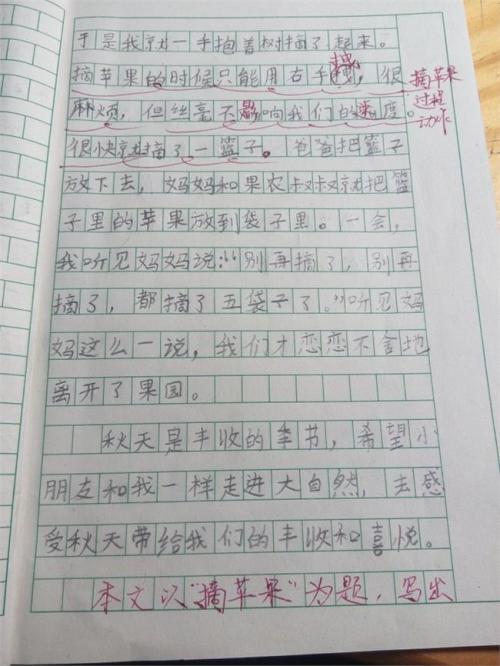 于是我就一手抱着树摘了起来。
摘苹果的时候只能用右手摘，很
麻烦，但丝毫不影响我们的速度。
很快就摘了一篮子。爸爸把篮子
放下去，妈妈和果农叔叔就把篮
子里的苹果放到袋子里。一会，
我听见妈妈说：“别再摘了，别再
摘了，都摘了五袋子了。”听见妈
妈这么一说，我们才恋恋不舍地
离开了果园。
秋天是丰收的季节，希望小
朋友和我一样走进大自然，去感
受秋天带给我们的丰收和喜悦。
本文以“摘苹果”为题，写出
摘苹果
过程
动作